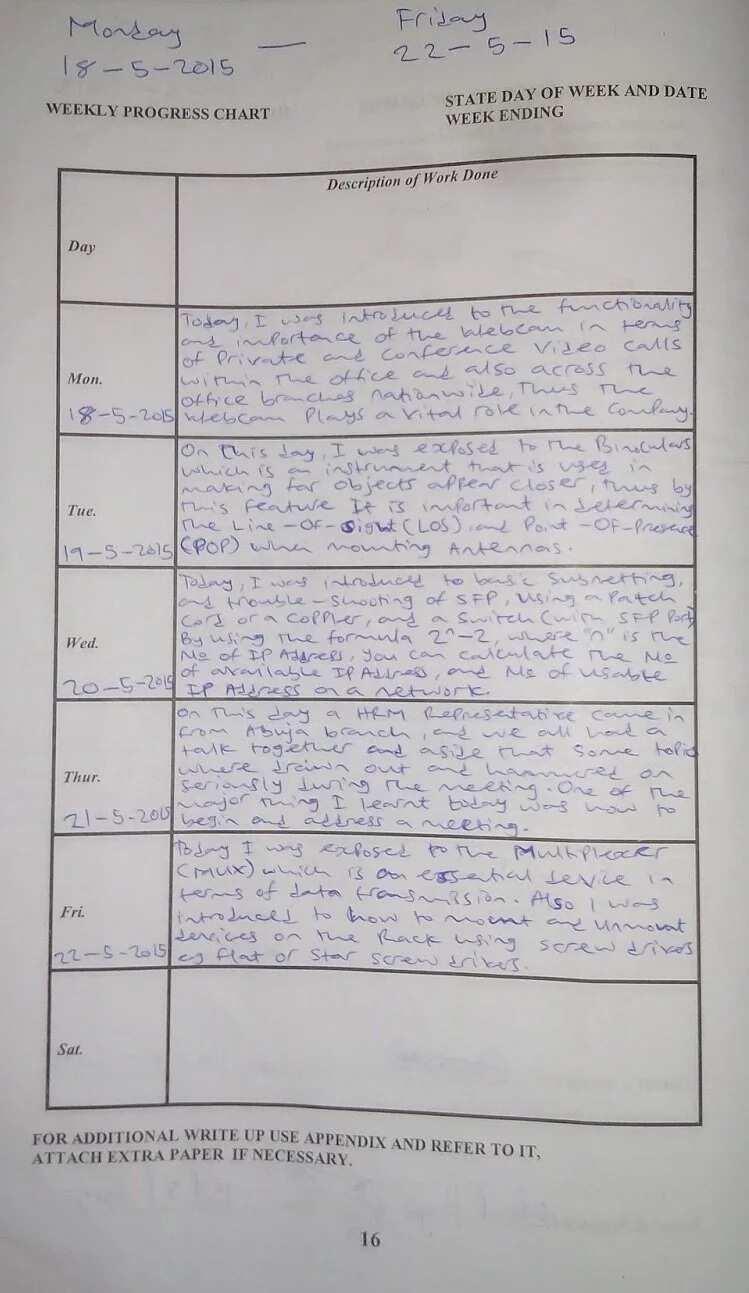 Monday — Friday
18-5-2015 22-5-15
WEEKLY PROGRESS CHART
STATE DAY OF WEEK AND DATE
WEEK ENDING
Day
Description of Work Done
Mon.
18-5-2015
Today, I was introduced to the functionality
and importance of the Webcam in terms
of Private and Conference Video Calls
within the office and also across the
office branches nationwide, thus the
Webcam Plays a vital role in the Company.
Tue.
19-5-2015
On this day, I was exposed to the Binoculars
which is an instrument that is used in
making far objects appear closer, thus by
this feature It is important in determining
the Line-Of-Sight (LOS) and Point-Of-Presence
(POP) when mounting Antennas.
Wed.
20-5-2015
Today, I was introduced to basic Subnetting,
and trouble-shooting of SFP, Using a Patch
Cord or a Coppler, and a Switch (with SFP Port)
By using the formula 2^-2, where "n" is the
No of IP Address, you can calculate the No
of available IP Address, and No of Usable
IP Address on a network.
Thur.
21-5-2015
On this day a HRM Representative came in
from Abuja branch, and we all had a
talk together and aside that some topic
where drawn out and hammered on
seriously during the meeting. One of the
major thing I learnt today was how to
begin and address a meeting.
Fri.
22-5-2015
Today I was exposed to the Multiplexer
(MUX) which is an essential device in
terms of data transmission. Also I was
introduced to how to mount and Unmount
devices on the Rack using screw drivers
eg flat or star screw drivers.
Sat.
FOR ADDITIONAL WRITE UP USE APPENDIX AND REFER TO IT,
ATTACH EXTRA PAPER IF NECESSARY.
16